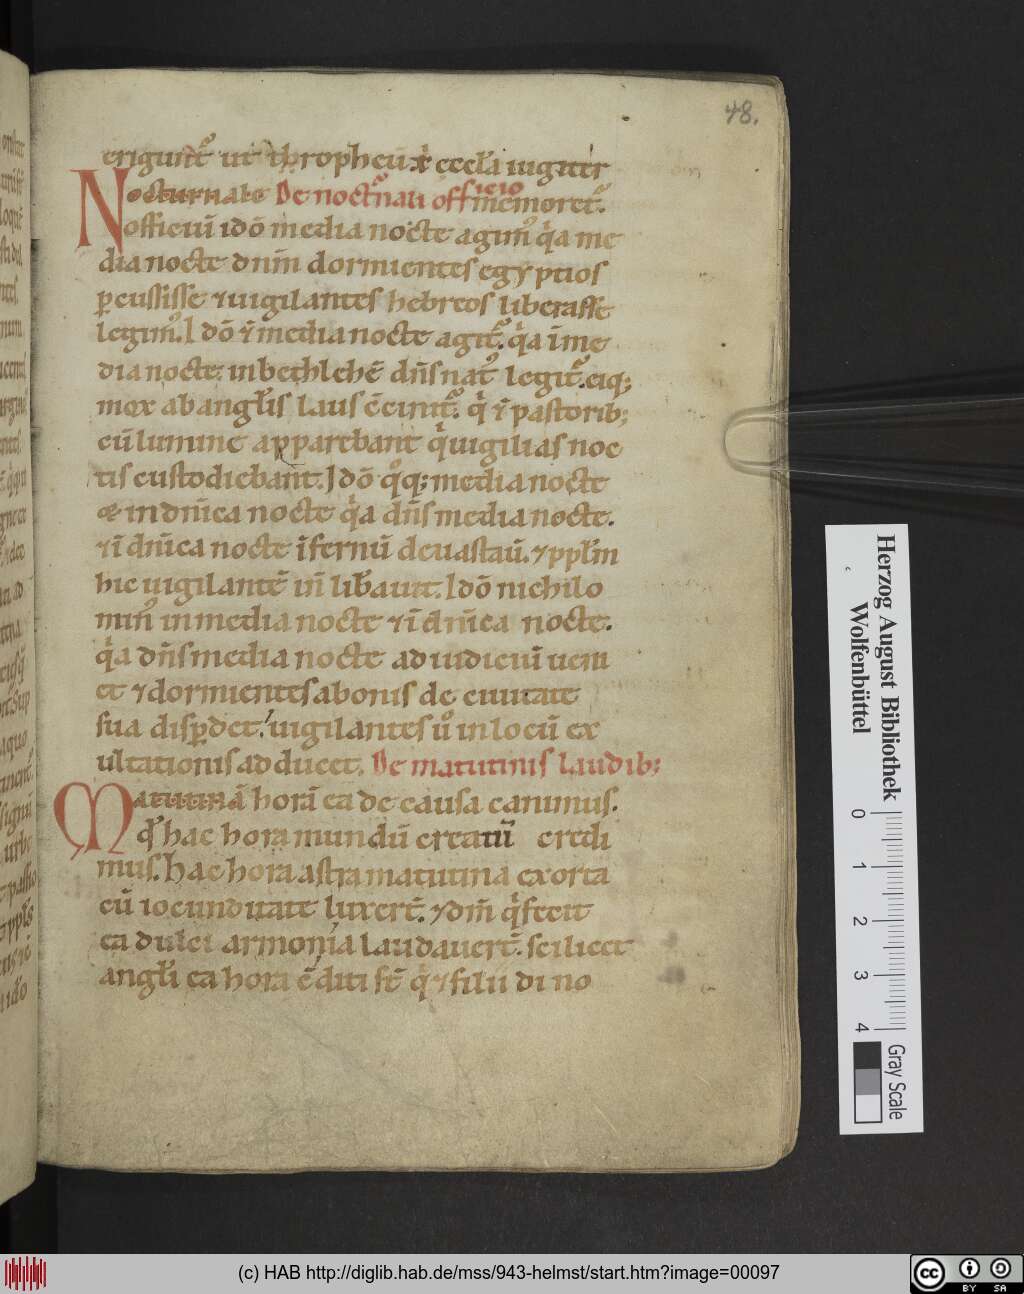 48.
erigunt᷑ ut ihropheū. xp̄ eccl̄a iugit᷑
Nocturnale De noct᷑nali officio memoret᷑.
officiū idō media nocte agim᷒ q̇a me
dia nocte dnm̄ dormientes egyptios
p̱cussisse ⁊ uigilantes hebreos liberasse
legim᷒. Idō ⁊ media nocte agit᷑. q̇a ī me
dia nocte. in bethlehē dn̄s nat᷒ legit᷑. eiq;
mox ab angl̄is laus cēcinit᷑. q̇ ⁊ pastorib;
cū lumine apparebant q̇ uigilias noc
tis custodiebant. Idō qͦq; media nocte
in dn̄ica nocte q̇a dn̄s media nocte.
⁊ ī dn̄ica nocte īfernū deuastaū. ⁊ ppl̄m
hic uigilantē īn lib̄auit. Idō nichilo
min᷒ in media nocte ⁊ ī dn̄ica nocte.
q̇a dn̄s media nocte ad iudiciū ueni
et ⁊ dormientes a bonis de ciuitate
sua disp̱det. uigilantes uͦ in locū ex
ultationis adducet. De matutinis laudib;
Matutinā horā ea de causa canimus.
q᷒ hac hora mundū creatū credi
mus. hac hora astra matutina exorta
cū iocunditate luxerт̄. ⁊ dm̄ q̇ fecit
ea dulci armonia laudauert̄. scilicet
angl̄i ea hora cēditi st̄ q̇ ⁊ filii di no
Herzog August Bibliothek
Wolfenbüttel
0 1 2 3 4
Gray Scale
(c) HAB http://diglib.hab.de/mss/943-helmst/start.htm?image=00097
cc BY SA